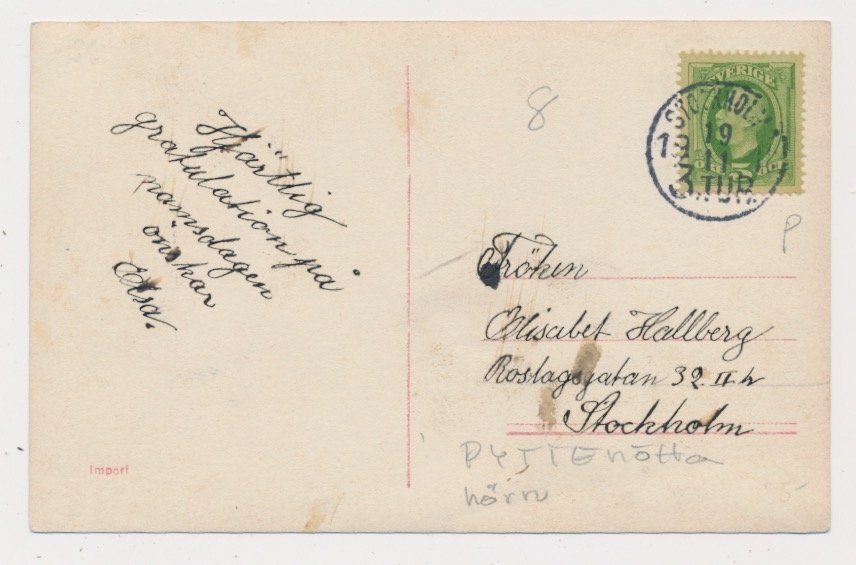 Hjärtlig
gratulation på
namnsdagen
önskar
Elsa.
8
SVERIGE
STOCKHOLM
19
11
3.TUR.
P
Fröken
Elisabet Hallberg
Roslagsgatan 32 II. h
Stockholm
nötta
hörn
Import